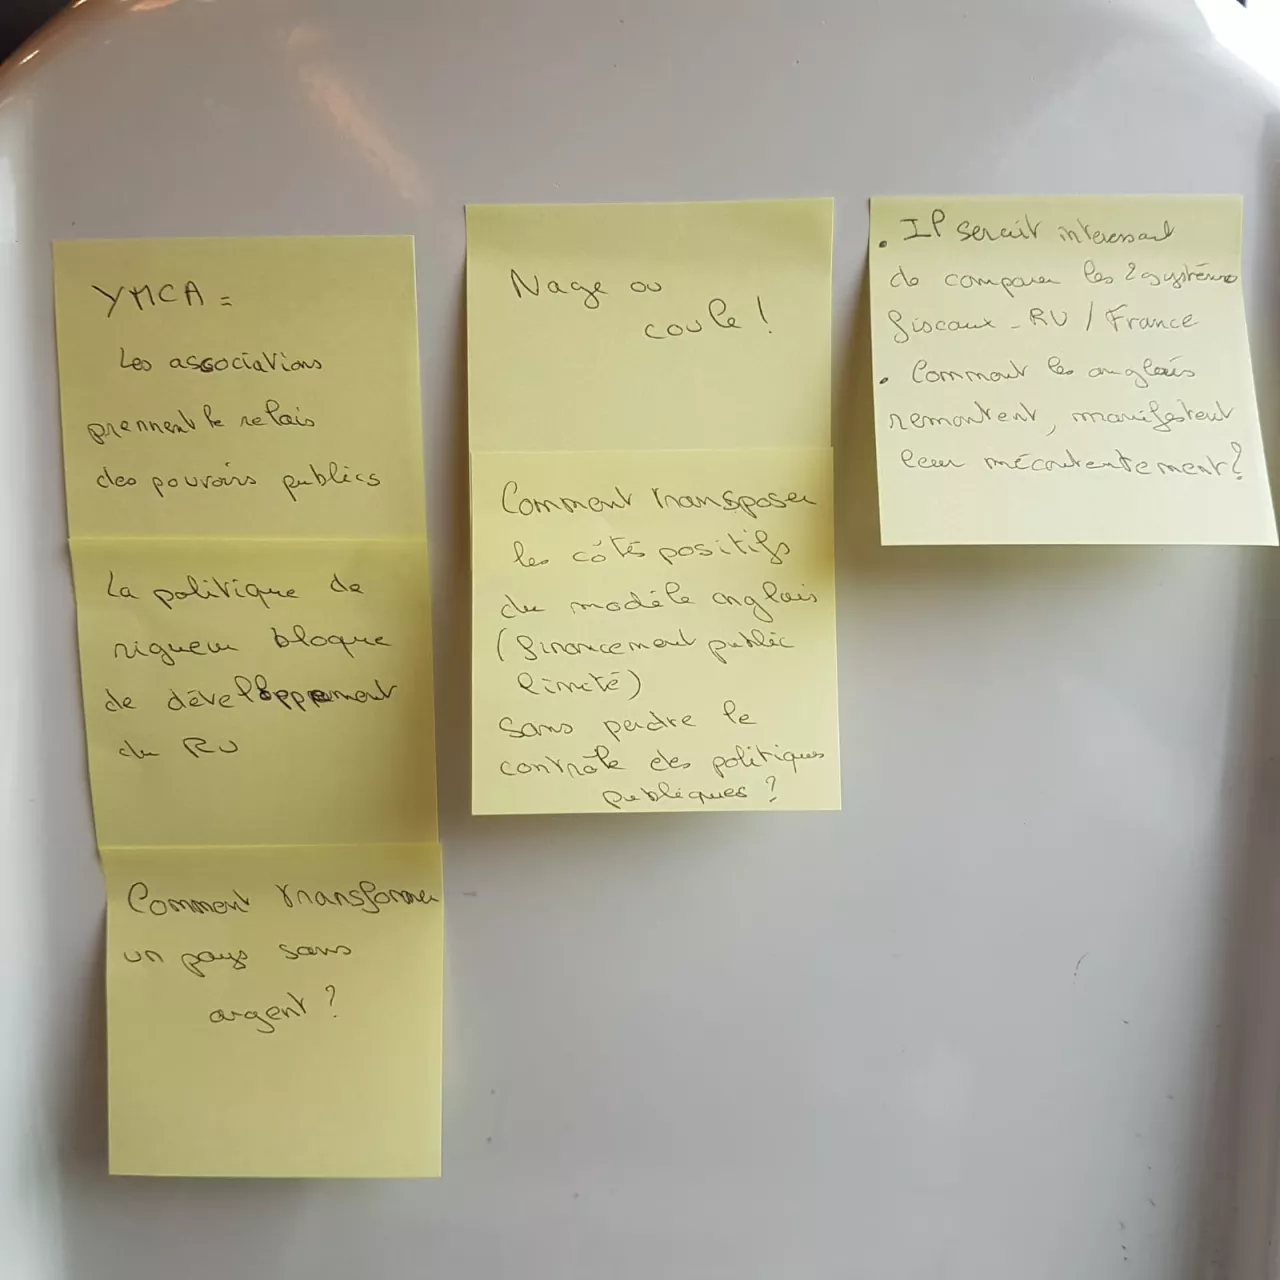 YMCA =
Les associations
prennent le relais
des pouvoirs publics
La politique de
rigueur bloque
de développement
du RU
Comment transformer
un pays sans
argent ?
Nage ou
coule !
Comment transposer
les côtés positifs
du modèle anglais
(financement public
limité)
sans perdre le
contrôle des politiques
publiques ?
. Il serait interessant
de comparer les 2 systèmes
fiscaux - RU / France
. Comment les anglais
remontent, manifestent
leur mécontentement ?